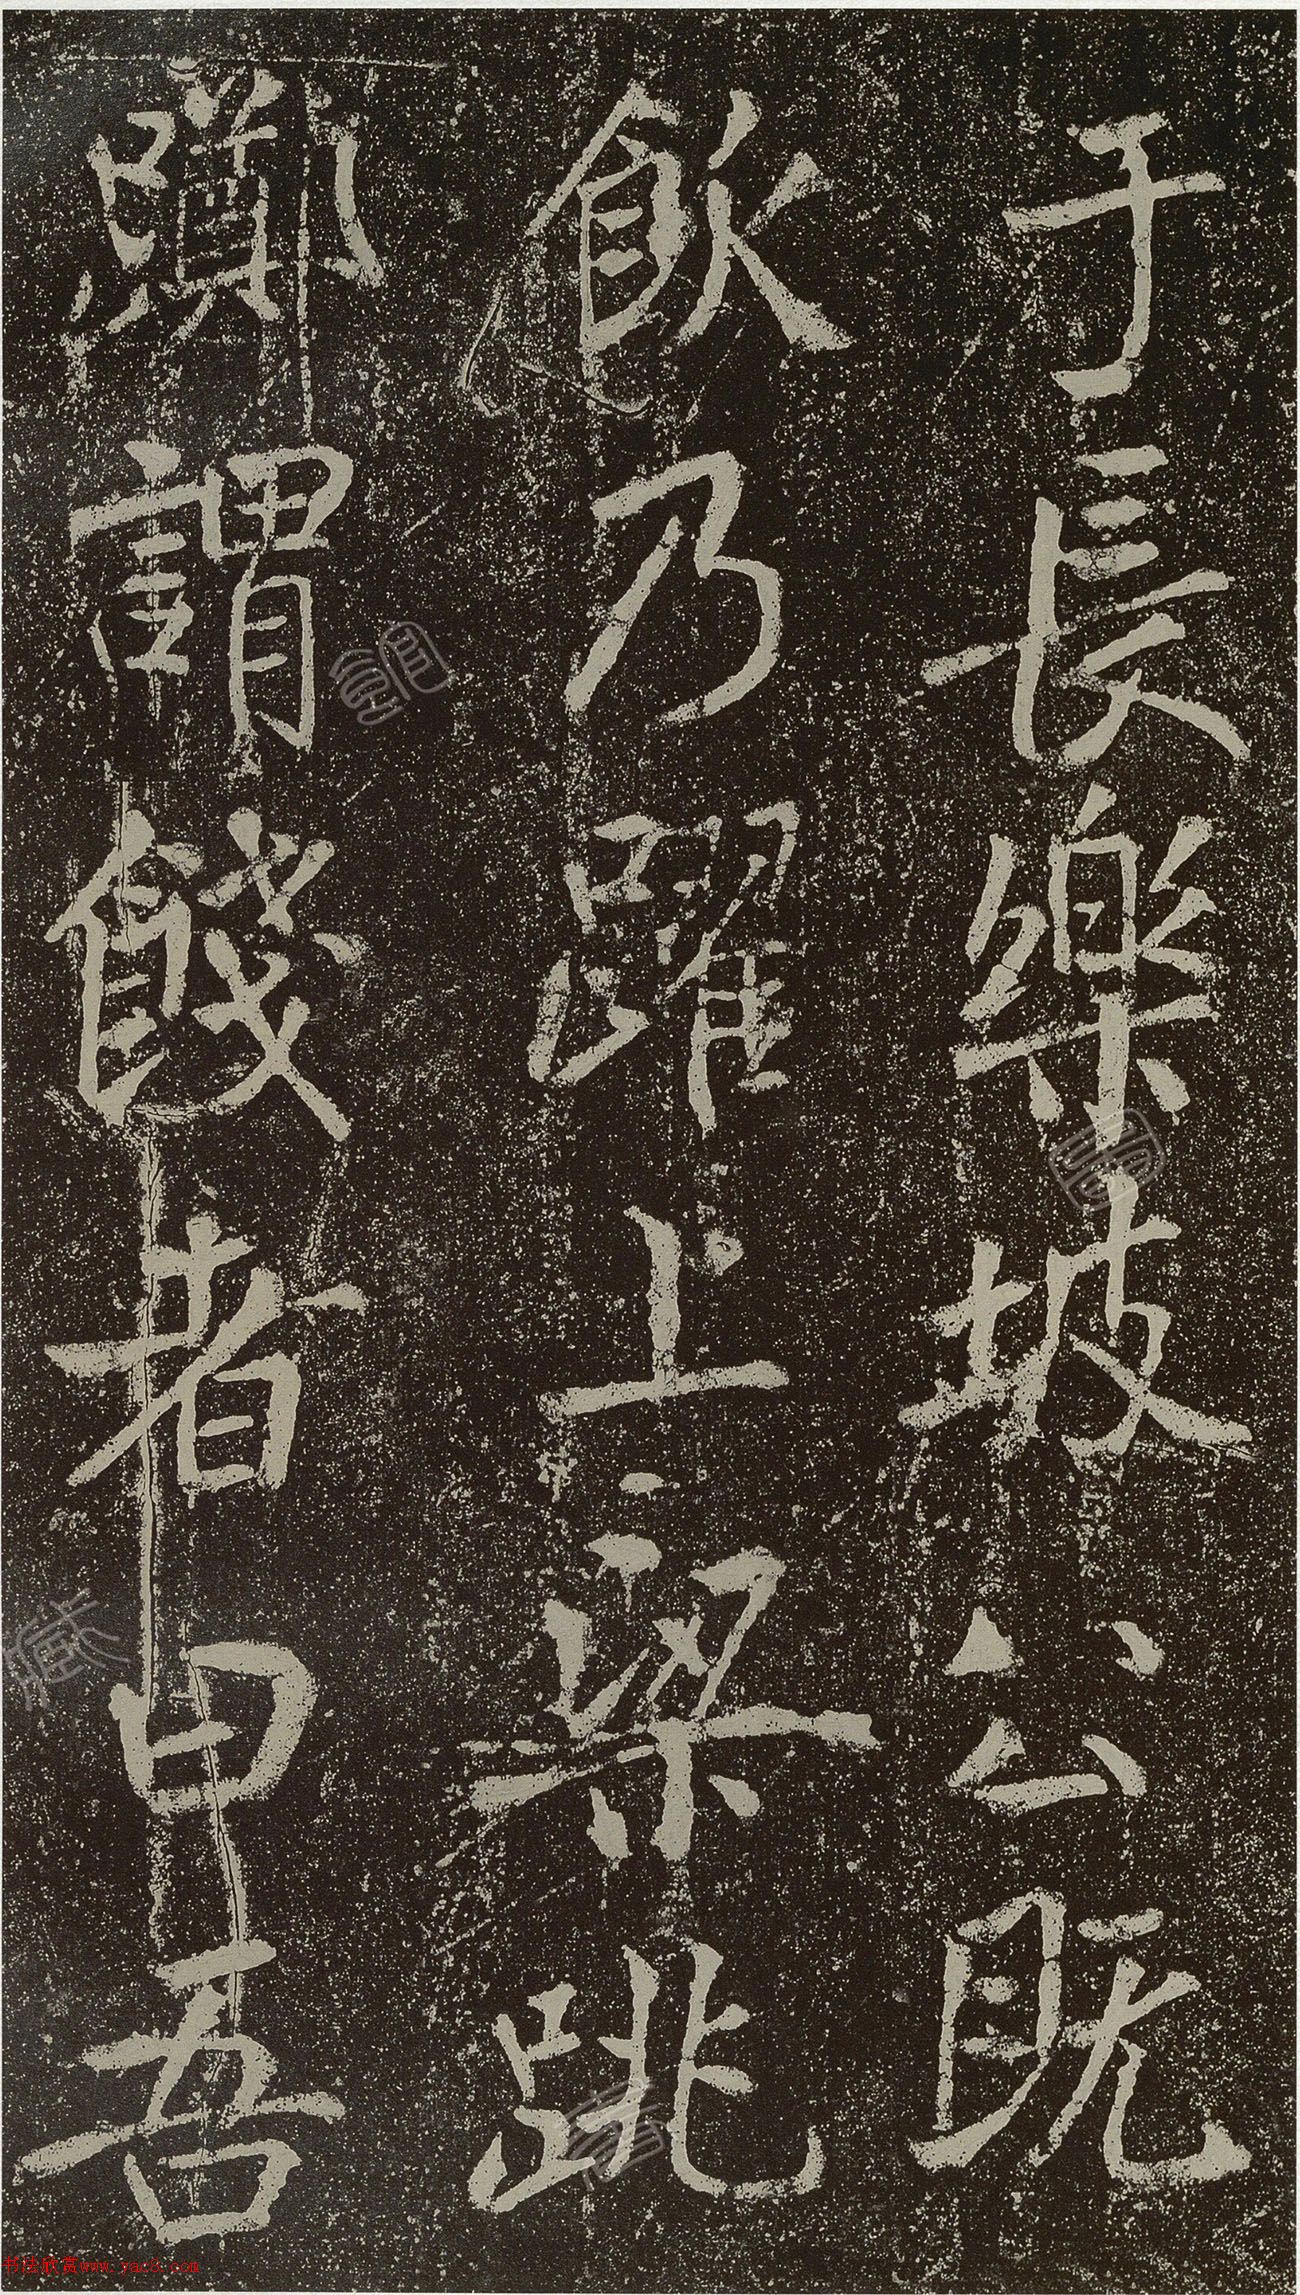 于長樂坡公既
飲乃躍上梁跳
躑謂餞者曰吾
书法欣赏www.yac8.com